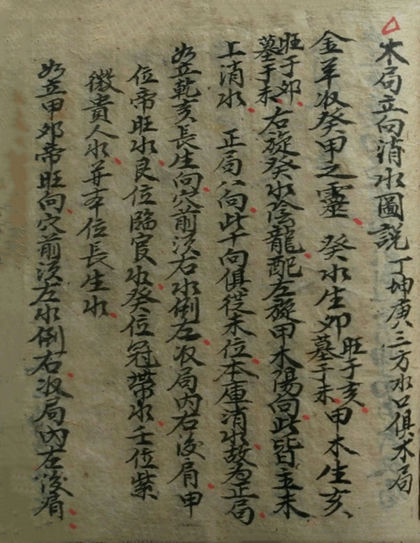 木局立向消水圖說 丁坤庚三方水口俱木局
金羊收癸甲之靈 癸水生卯旺于亥墓于未甲木生亥
旺于卯墓于未右旋癸水陰龍配左旋甲木陽向此皆主未
上消水 正局八向此十向俱從未位本庫消水故為正局
如立乾亥長生向穴前須右水倒左收局內右後肩甲
位帝旺水艮位臨官水癸位冠帶水壬位紫
微貴人水并本位長生水
如立甲卯帝旺向穴前須左水倒右收局內左後肩